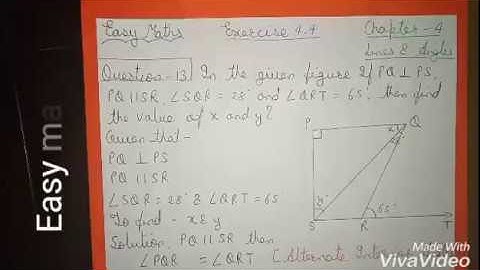 Easy Maths Exercise 4.4 Chapter-4
Lines & Angles
Question-13) In the given figure if PQ ⊥ PS,
PQ || SR, ∠SQR = 28° and ∠QRT = 65°, then find
the value of x and y?
Given that-
PQ ⊥ PS
PQ || SR
∠SQR = 28° & ∠QRT = 65
To find - x & y
Solution, PQ || SR then
∠PQR = ∠QRT [Alternate Interior
P
Q
x
28°
y
65°
S
R
T
Easy ma
Made With
VivaVideo